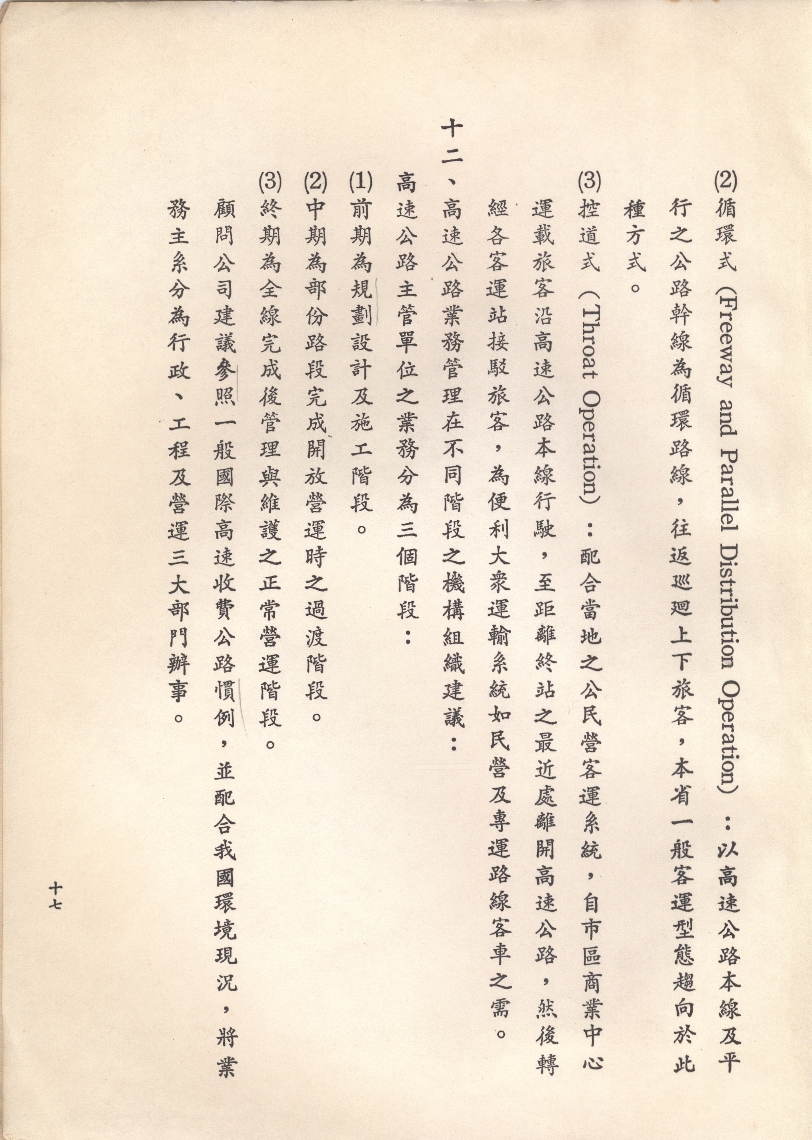 (2)循環式（Freeway and Parallel Distribution Operation）：以高速公路本線及平
行之公路幹線為循環路線，往返巡迴上下旅客，本省一般客運型態趨向於此
種方式。
(3)控道式（Throat Operation）：配合當地之公民營客運系統，自市區商業中心
運載旅客沿高速公路本線行駛，至距離終站之最近處離開高速公路，然後轉
經各客運站接駁旅客，為便利大衆運輸系統如民營及專運路線客車之需。
十二、高速公路業務管理在不同階段之機構組織建議：
高速公路主管單位之業務分為三個階段：
(1)前期為規劃設計及施工階段。
(2)中期為部份路段完成開放營運時之過渡階段。
(3)終期為全線完成後管理與維護之正常營運階段。
顧問公司建議參照一般國際高速收費公路慣例，並配合我國環境現況，將業
務主系分為行政、工程及營運三大部門辦事。
十七